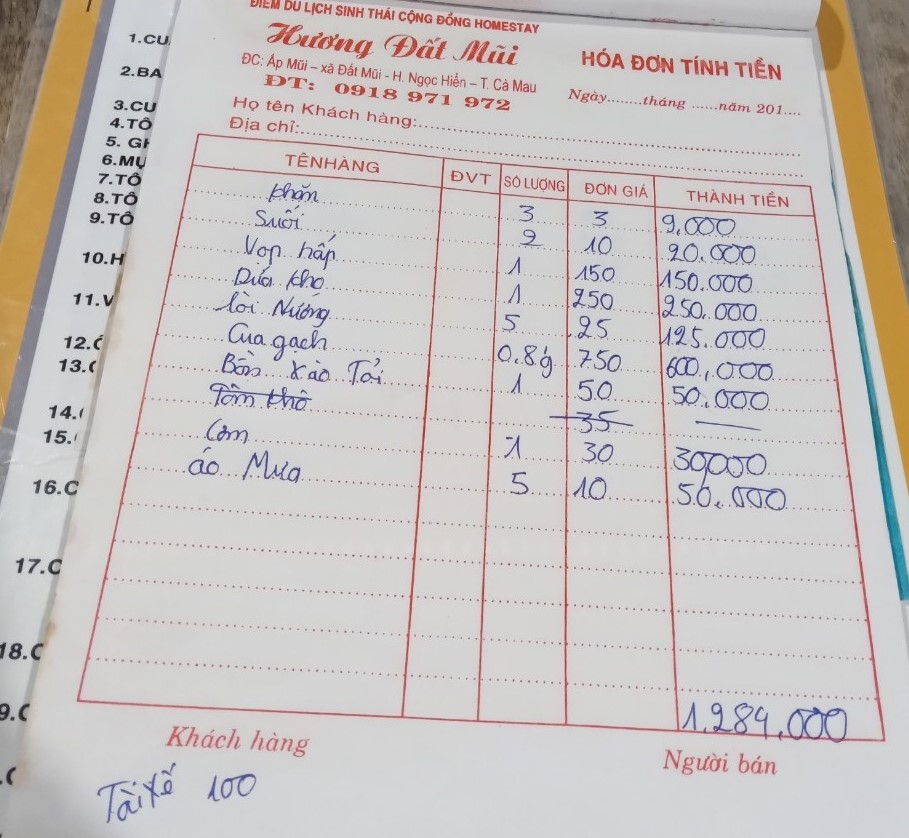 ĐIỂM DU LỊCH SINH THÁI CỘNG ĐỒNG HOMESTAY
Hương Đất Mũi
ĐC: Ấp Mũi - xã Đất Mũi - H. Ngọc Hiển - T. Cà Mau
ĐT: 0918 971 972
HÓA ĐƠN TÍNH TIỀN
Ngày........tháng ......năm 201....
Họ tên Khách hàng:
Địa chỉ:
TÊNHÀNG ĐVT SỐ LƯỢNG ĐƠN GIÁ THÀNH TIỀN
Khăn 3 3 9.000
Suối 2 10 20.000
Vọp hấp 1 150 150.000
Dứa kho 1 250 250.000
lòi Nướng 5 25 125.000
Cua gạch 0.8g 750 600.000
Bồn xào Tỏi 1 50 50.000
Tôm khô 35
Cơm 1 30 30000
áo Mưa 5 10 50.000
1.284.000
Khách hàng
Người bán
Tài xế 100
1.CU
2.BA
3.CU
4.TÔ
5. GH
6.MỰ
7.TÔ
8.TÔ
9.TÔ
10.H
11.V
12.C
13.C
14.
15.
16.C
17.C
18.C
9.C